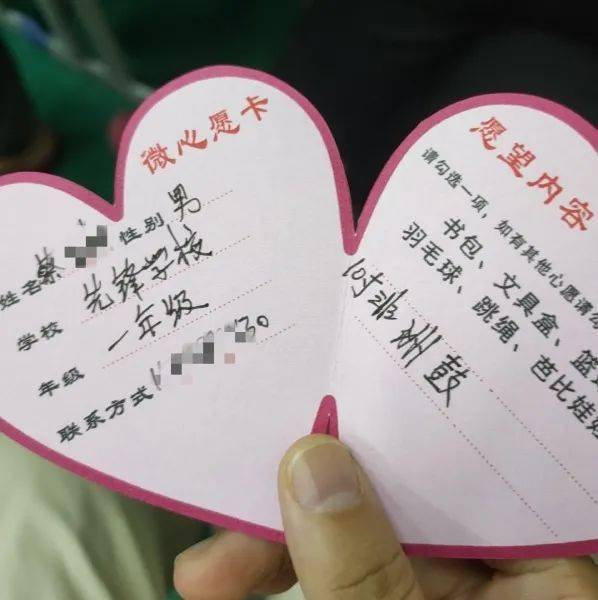 微心愿卡
姓名 蔡 性别 男
学校 先锋学校
年级 一年级
联系方式
愿望内容
请勾选一项，如有其他心愿请勾
书包、文具盒、篮
羽毛球、跳绳、芭比娃
非州鼓